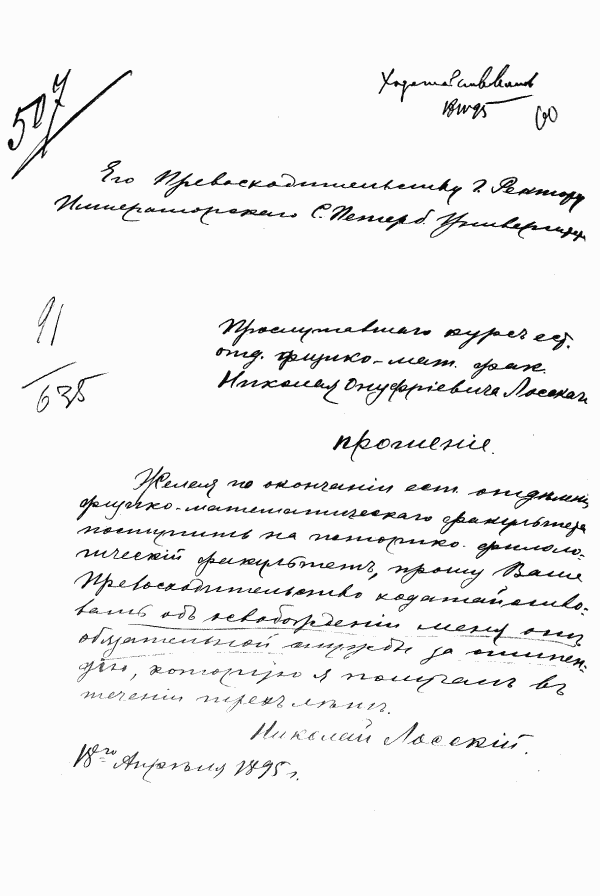 507
Ходатайствовать
18 IV 95
60
Его Превосходительству Г. Ректору
Императорскаго С. Петерб. Университета
91
635
Прослушавшаго курсъ ест.
отд. физико-мат. фак.
Николая Онуфріевича Лосскаго
прошеніе.
Желая по окончаніи ест. отдѣленія
физико-математическаго факультета
поступить на историко-филоло-
гическій факультетъ, прошу Ваше
Превосходительство ходатайство-
вать объ освобожденіи меня отъ
обязательной службы за стипен-
дію, которую я получалъ въ
теченіи трехъ лѣтъ.
Николай Лосскій.
18го Апрѣля 1895 г.